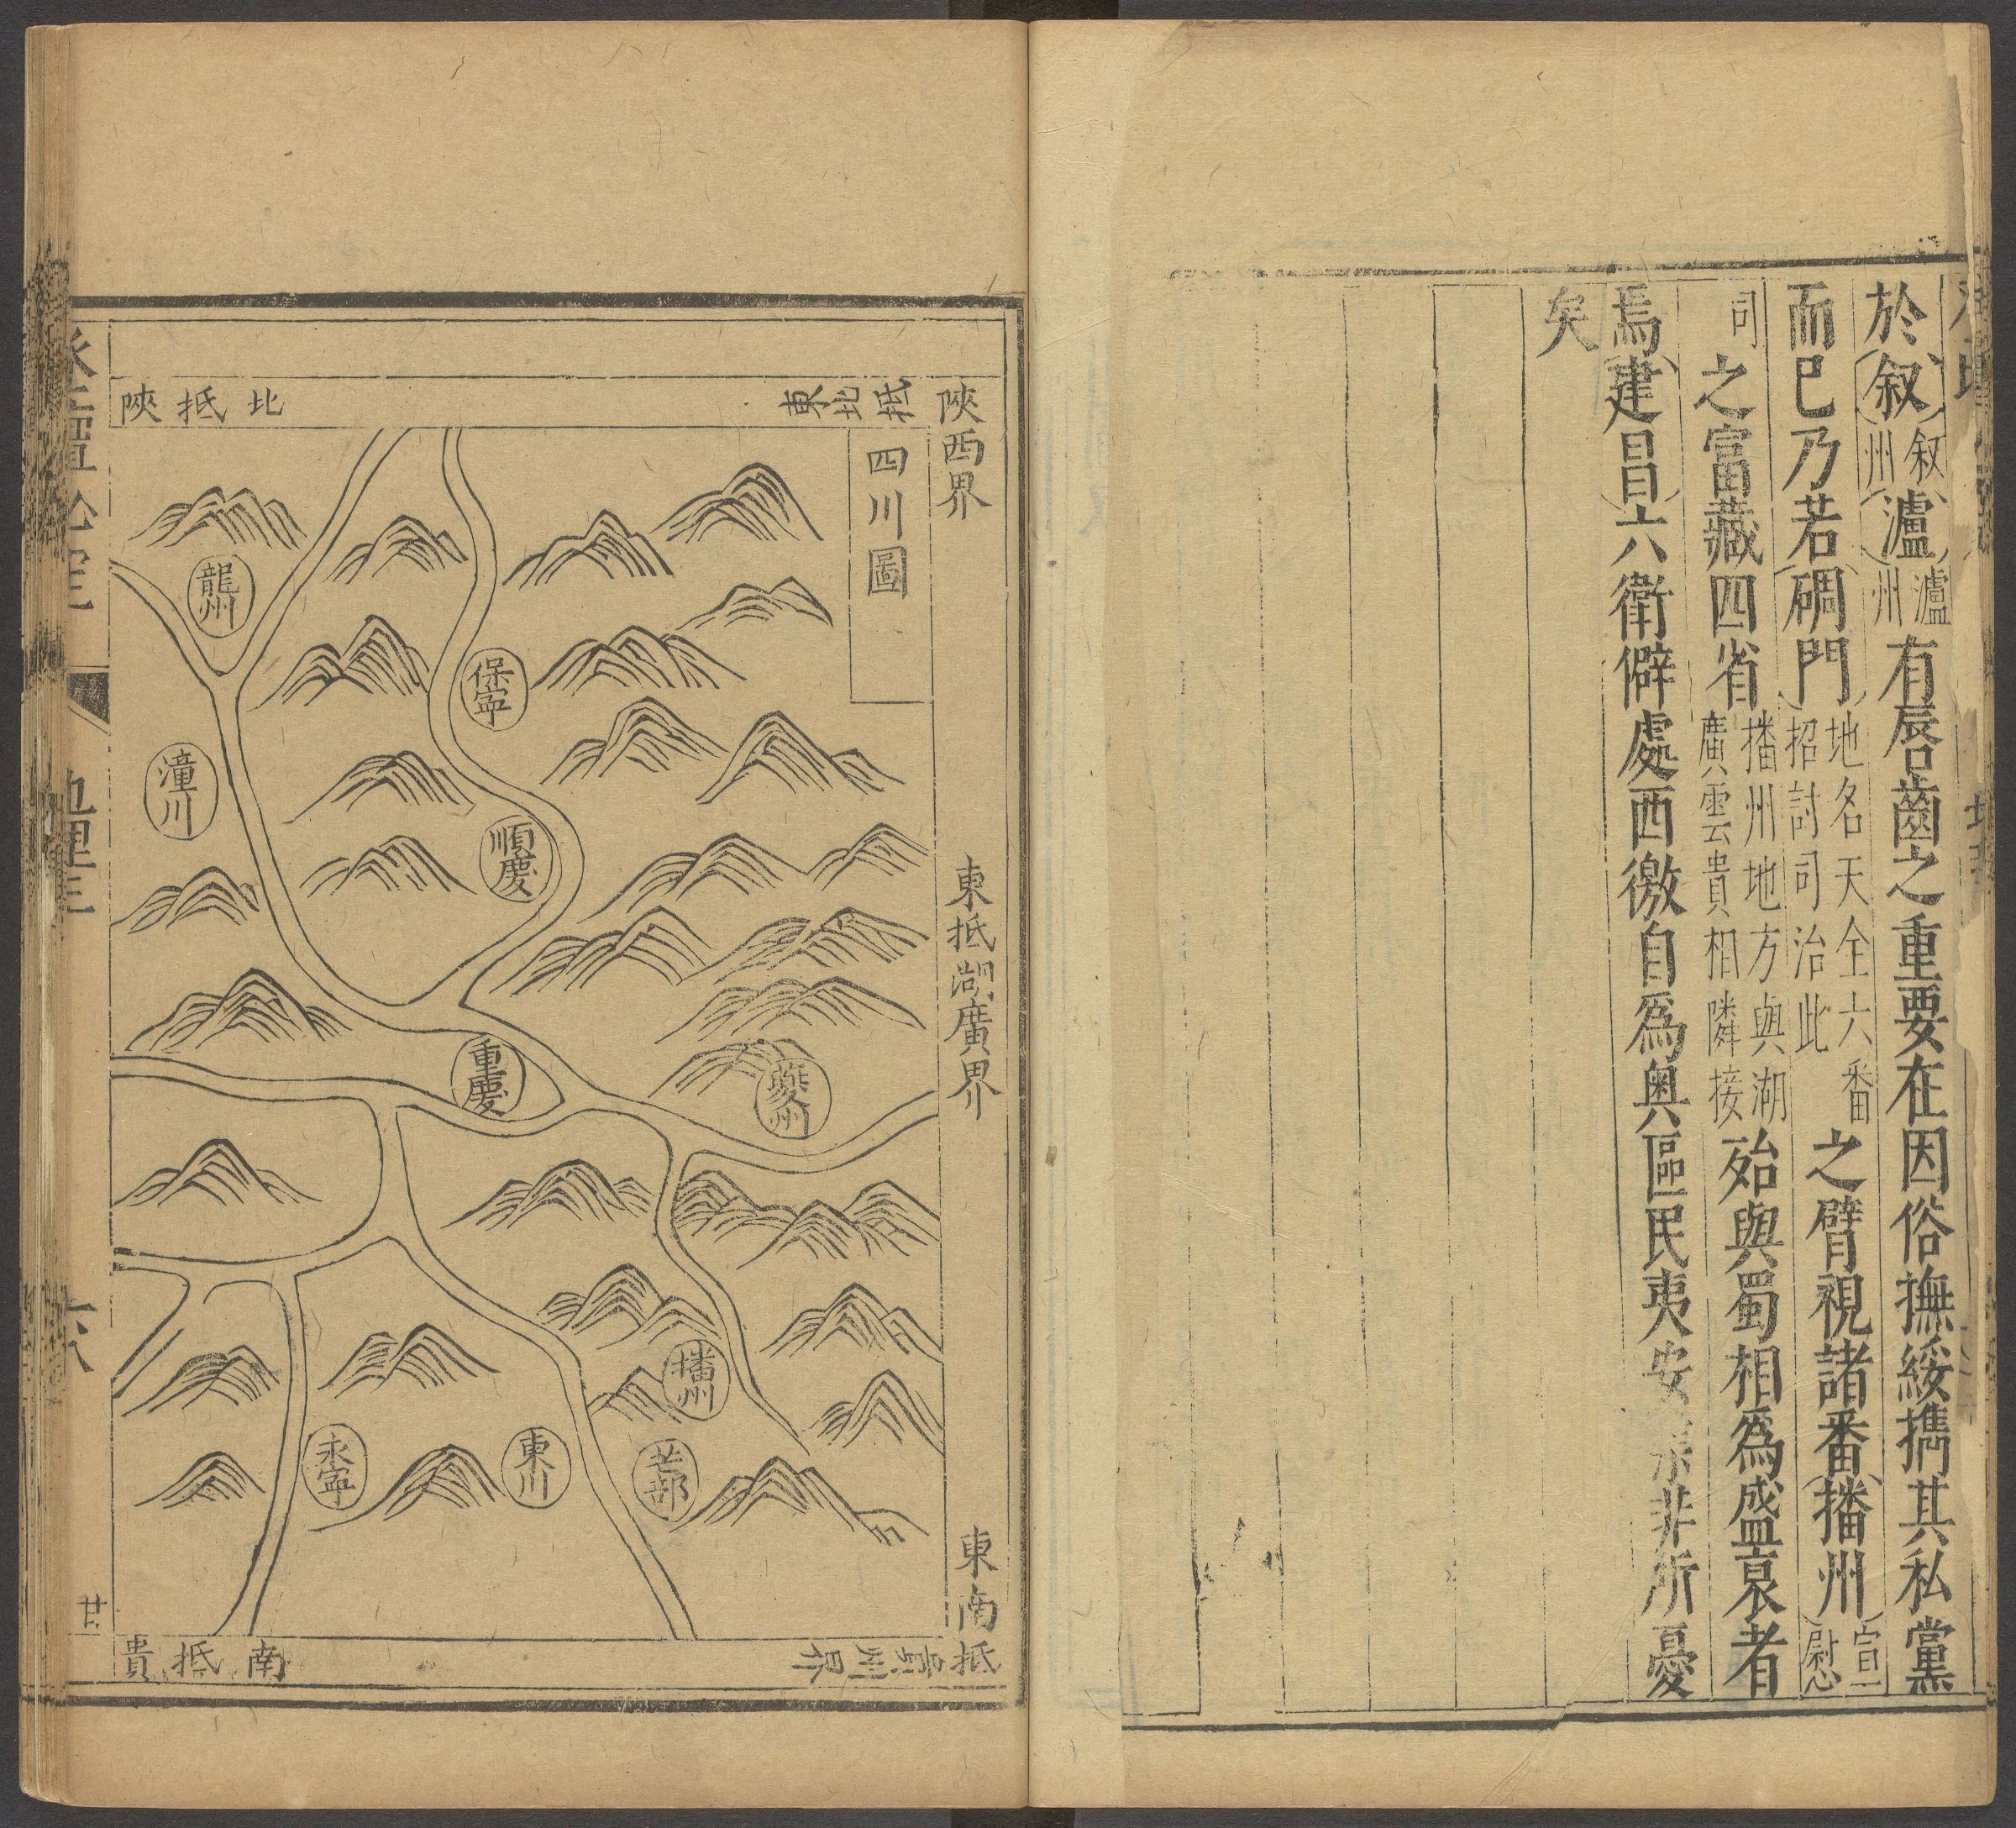 於叙叙州瀘瀘州有唇齒之重要在因俗撫綏擕其私黨
而巳乃若碉門地名天全六番招討司治此之臂視諸番播州宣慰
司之富藏四省播州地方與湖廣雲貴相隣接殆與蜀相爲盛衰者
焉建昌六衛僻處西徼自爲奥區民夷安非所憂
矣
陝西界
東抵湖廣界
東南抵貴州界
東北抵
四川圖
北抵陝
龍州
保寧
潼川
順慶
重慶
夔州
播州
永寧
東川
芒部
南抵貴
地理
廿